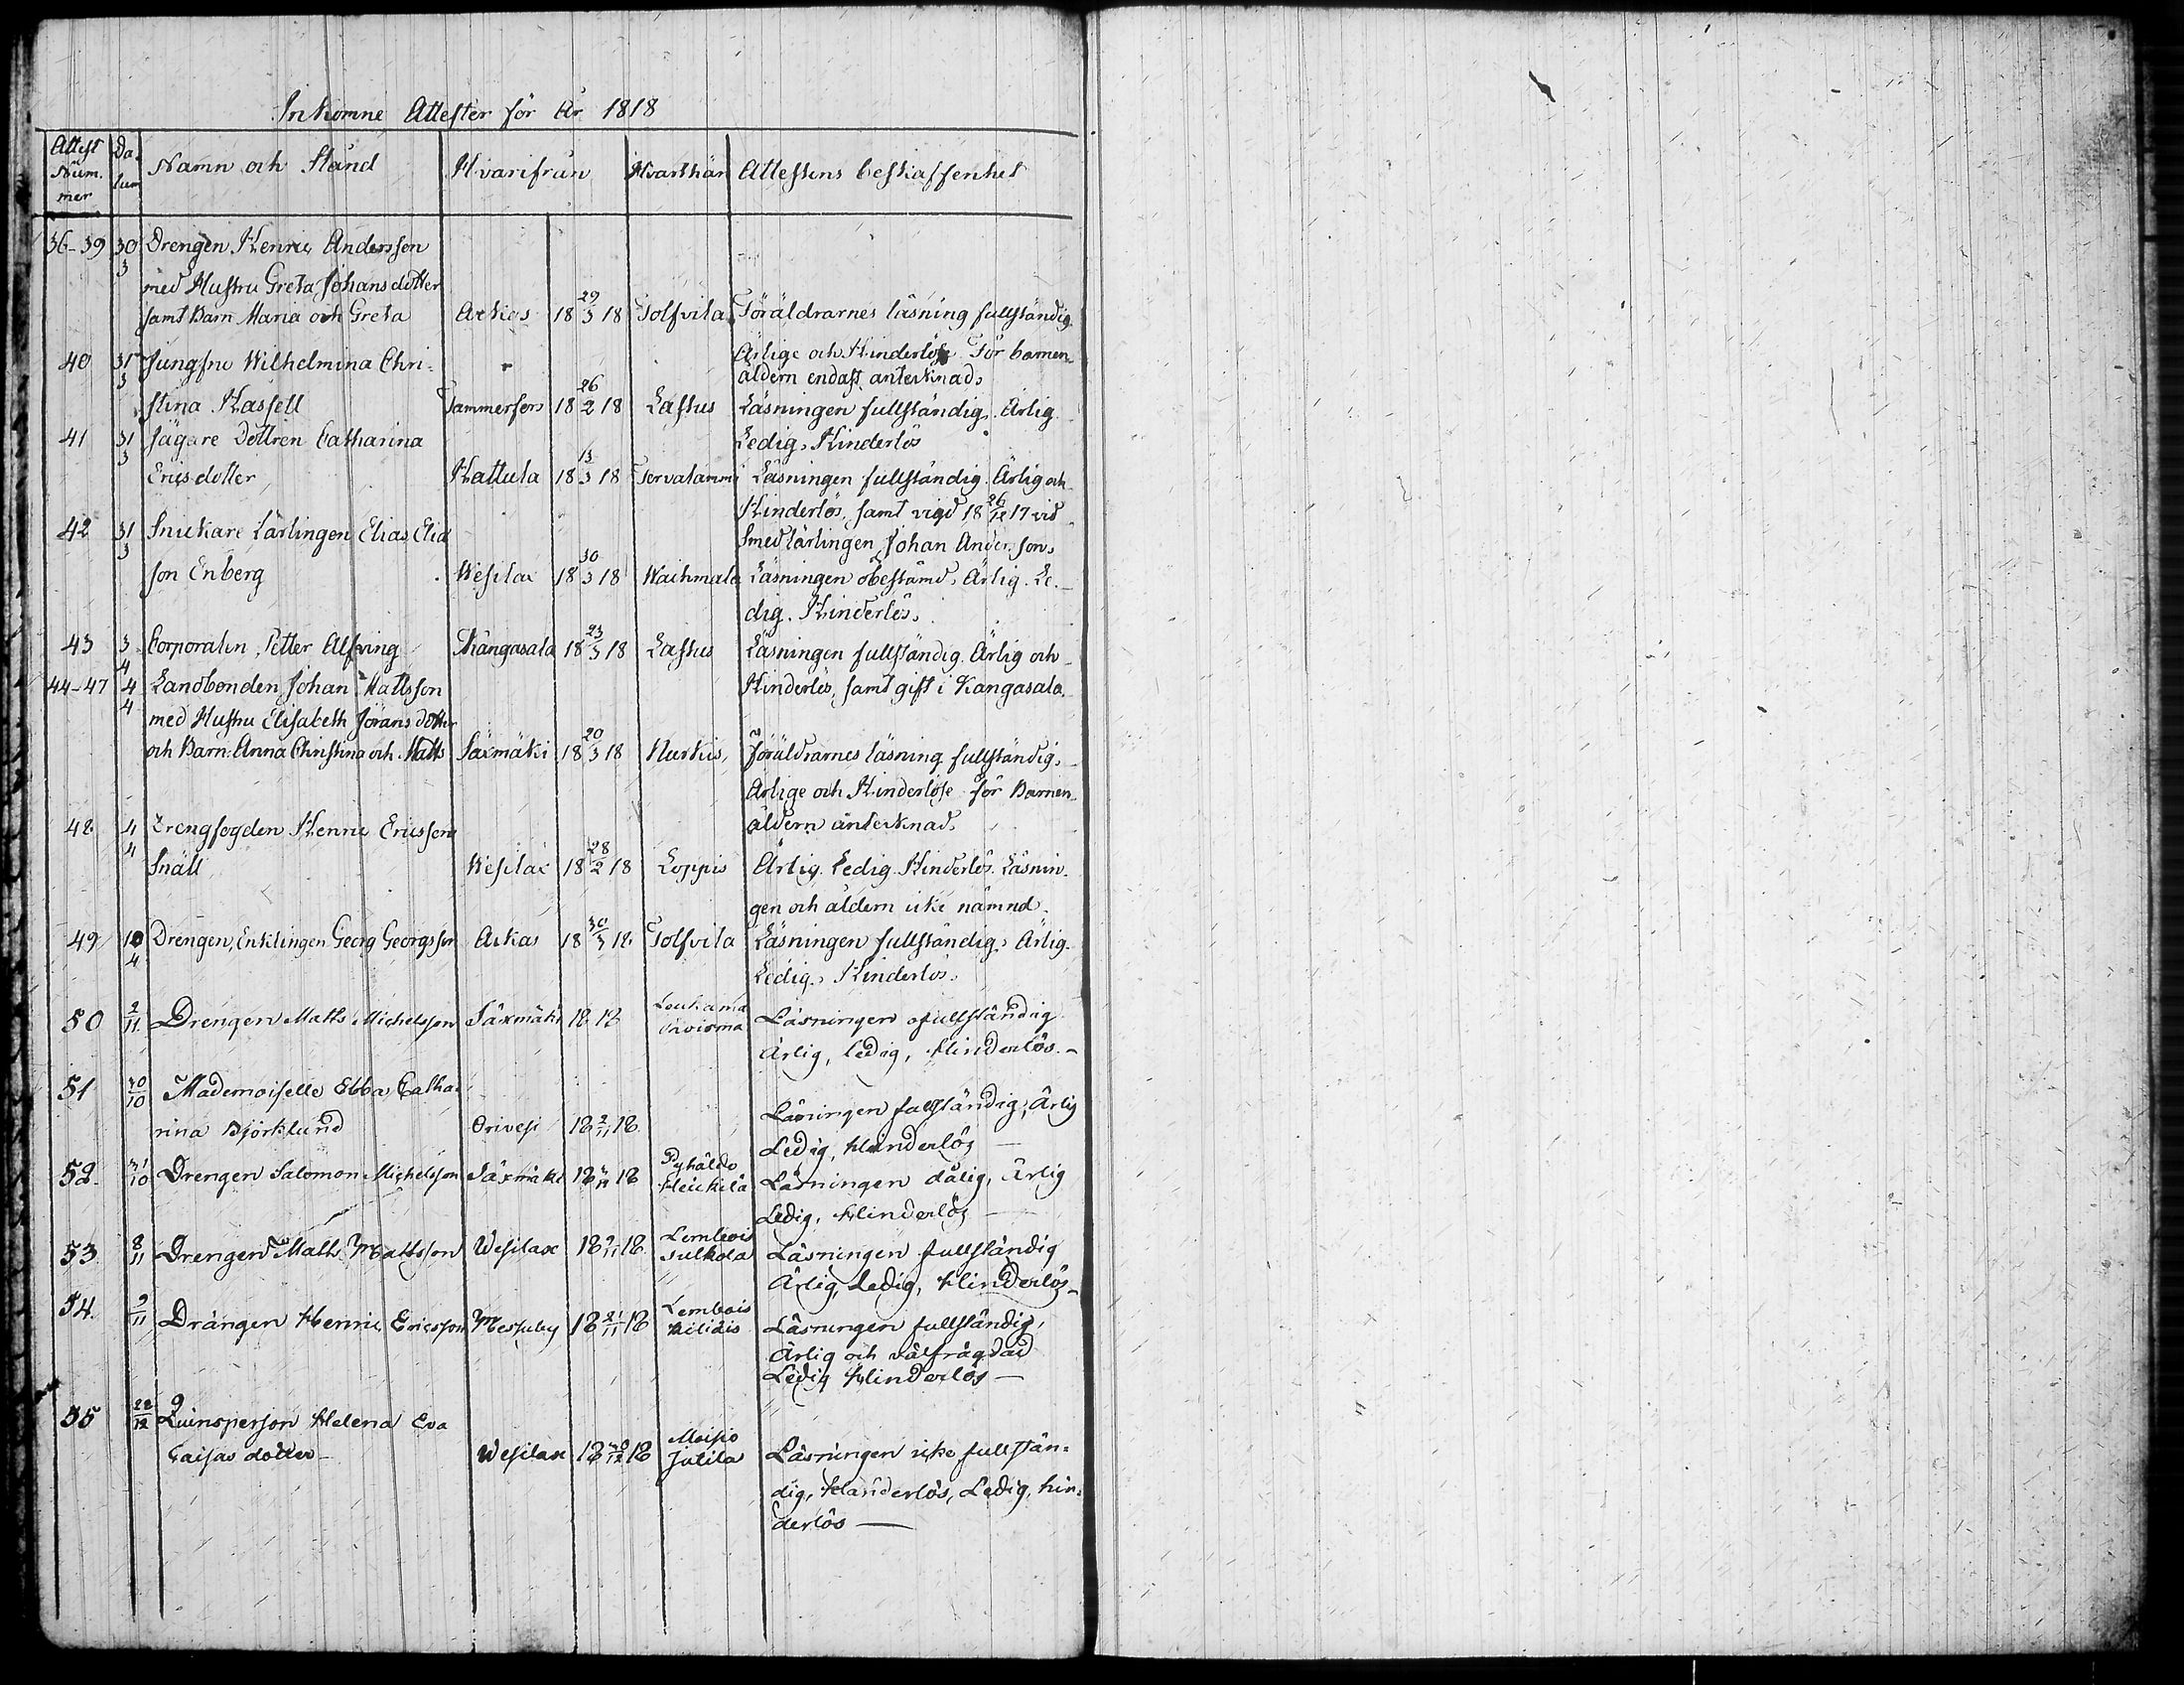 Inkomne Attester för År 1818
Attest Num. mer
Da. tum
Namn och Stånd
Hvarifrån
Hvarthän
Attestens beskaffenhet
36-39 30/3 Drengen Henric Andersson
med Hustru Greta Johansdotter
samt Barn Maria och Greta Ackas 18 29/3 18 Tolfvila Föräldrarnes läsning fullständig.
Ärlige och Hinderlöse För barnen
åldern endast antecknad.
40 31/3 Jungfru Wilhelmina Chri-
stina Hassell Tammerfors 18 26/2 18 Lastus Läsningen fullständig. Ärlig.
Ledig. Hinderlös
41 31/3 Jägare Dottren Catharina
Ericsdotter Hattula 18 13/3 18 Tervalammi Läsningen fullständig. Ärlig och
Hinderlös, samt vigd 18 26/12 17 vid
Smedlärlingen Johan Andersson.
42 31/3 Snickare Lärlingen Elias Elia
son Enberg Wesilax 18 30/3 18 Waihmala Läsningen obestämd. Ärlig. Le-
dig. Hinderlös.
43 3/4 Corporalen Petter Alfving Kangasala 18 23/3 18 Lastus Läsningen fullständig. Ärlig och
Hinderlös, samt gift i Kangasala.
44-47 4/4 Landbonden Johan Mattsson
med Hustru Elisabeth Jöransdotter
och Barn: Anna Christina och Matts Säxmäki 18 20/3 18 Nurkis, Föräldrarnes läsning fullständig.
Ärlige och Hinderlöse för Barnen
åldern antecknad.
48 4/4 Drengfogden Henric Ericsson
Snäll Wesilax 18 28/2 18 Loppis Ärlig. Ledig. Hinderlös. Läsnin-
gen och åldern icke nämnd.
49 10/4 Drengen, Enklingen Georg Georgsson Ackas 18 30/3 18 Tolfvila Läsningen fullständig. Ärlig.
Ledig. Hinderlös.
50 2/11 Drengen Matts Michelsson Säxmäki 18 18 Läsningen ofullständig
Ärlig, ledig, Hinderlös.-
51 30/10 Mademoiselle Ebba Catha-
rina Björklund Orivesi 18 2/11 18 Läsningen fullständig, Ärlig
Ledig, Hinderlös —
52 31/10 Drengen Salomon Michelsson Säxmäki 18 18 Pyhäldo Heickilä Läsningen dålig, Ärlig
Ledig, Hinderlös —
53 8/11 Drengen Matts Mattsson Wesilax 18 9/11 18 Lembois Sulkola Läsningen fullständig
Ärlig, Ledig, Hinderlös-
54. 9/11 Drängen Henric Ericsson Messuby 18 21/11 18 Lembois Läsningen fullständig,
Ärlig och välfrägdad
Ledig Hinderlös —
55 22/12 Quinsperson Helena Eva
Caisas dotter- Wesilax 18 18 Moisio Jutila Läsningen icke fullstän-
dig, Klanderlös, Ledig, hin-
derlös —